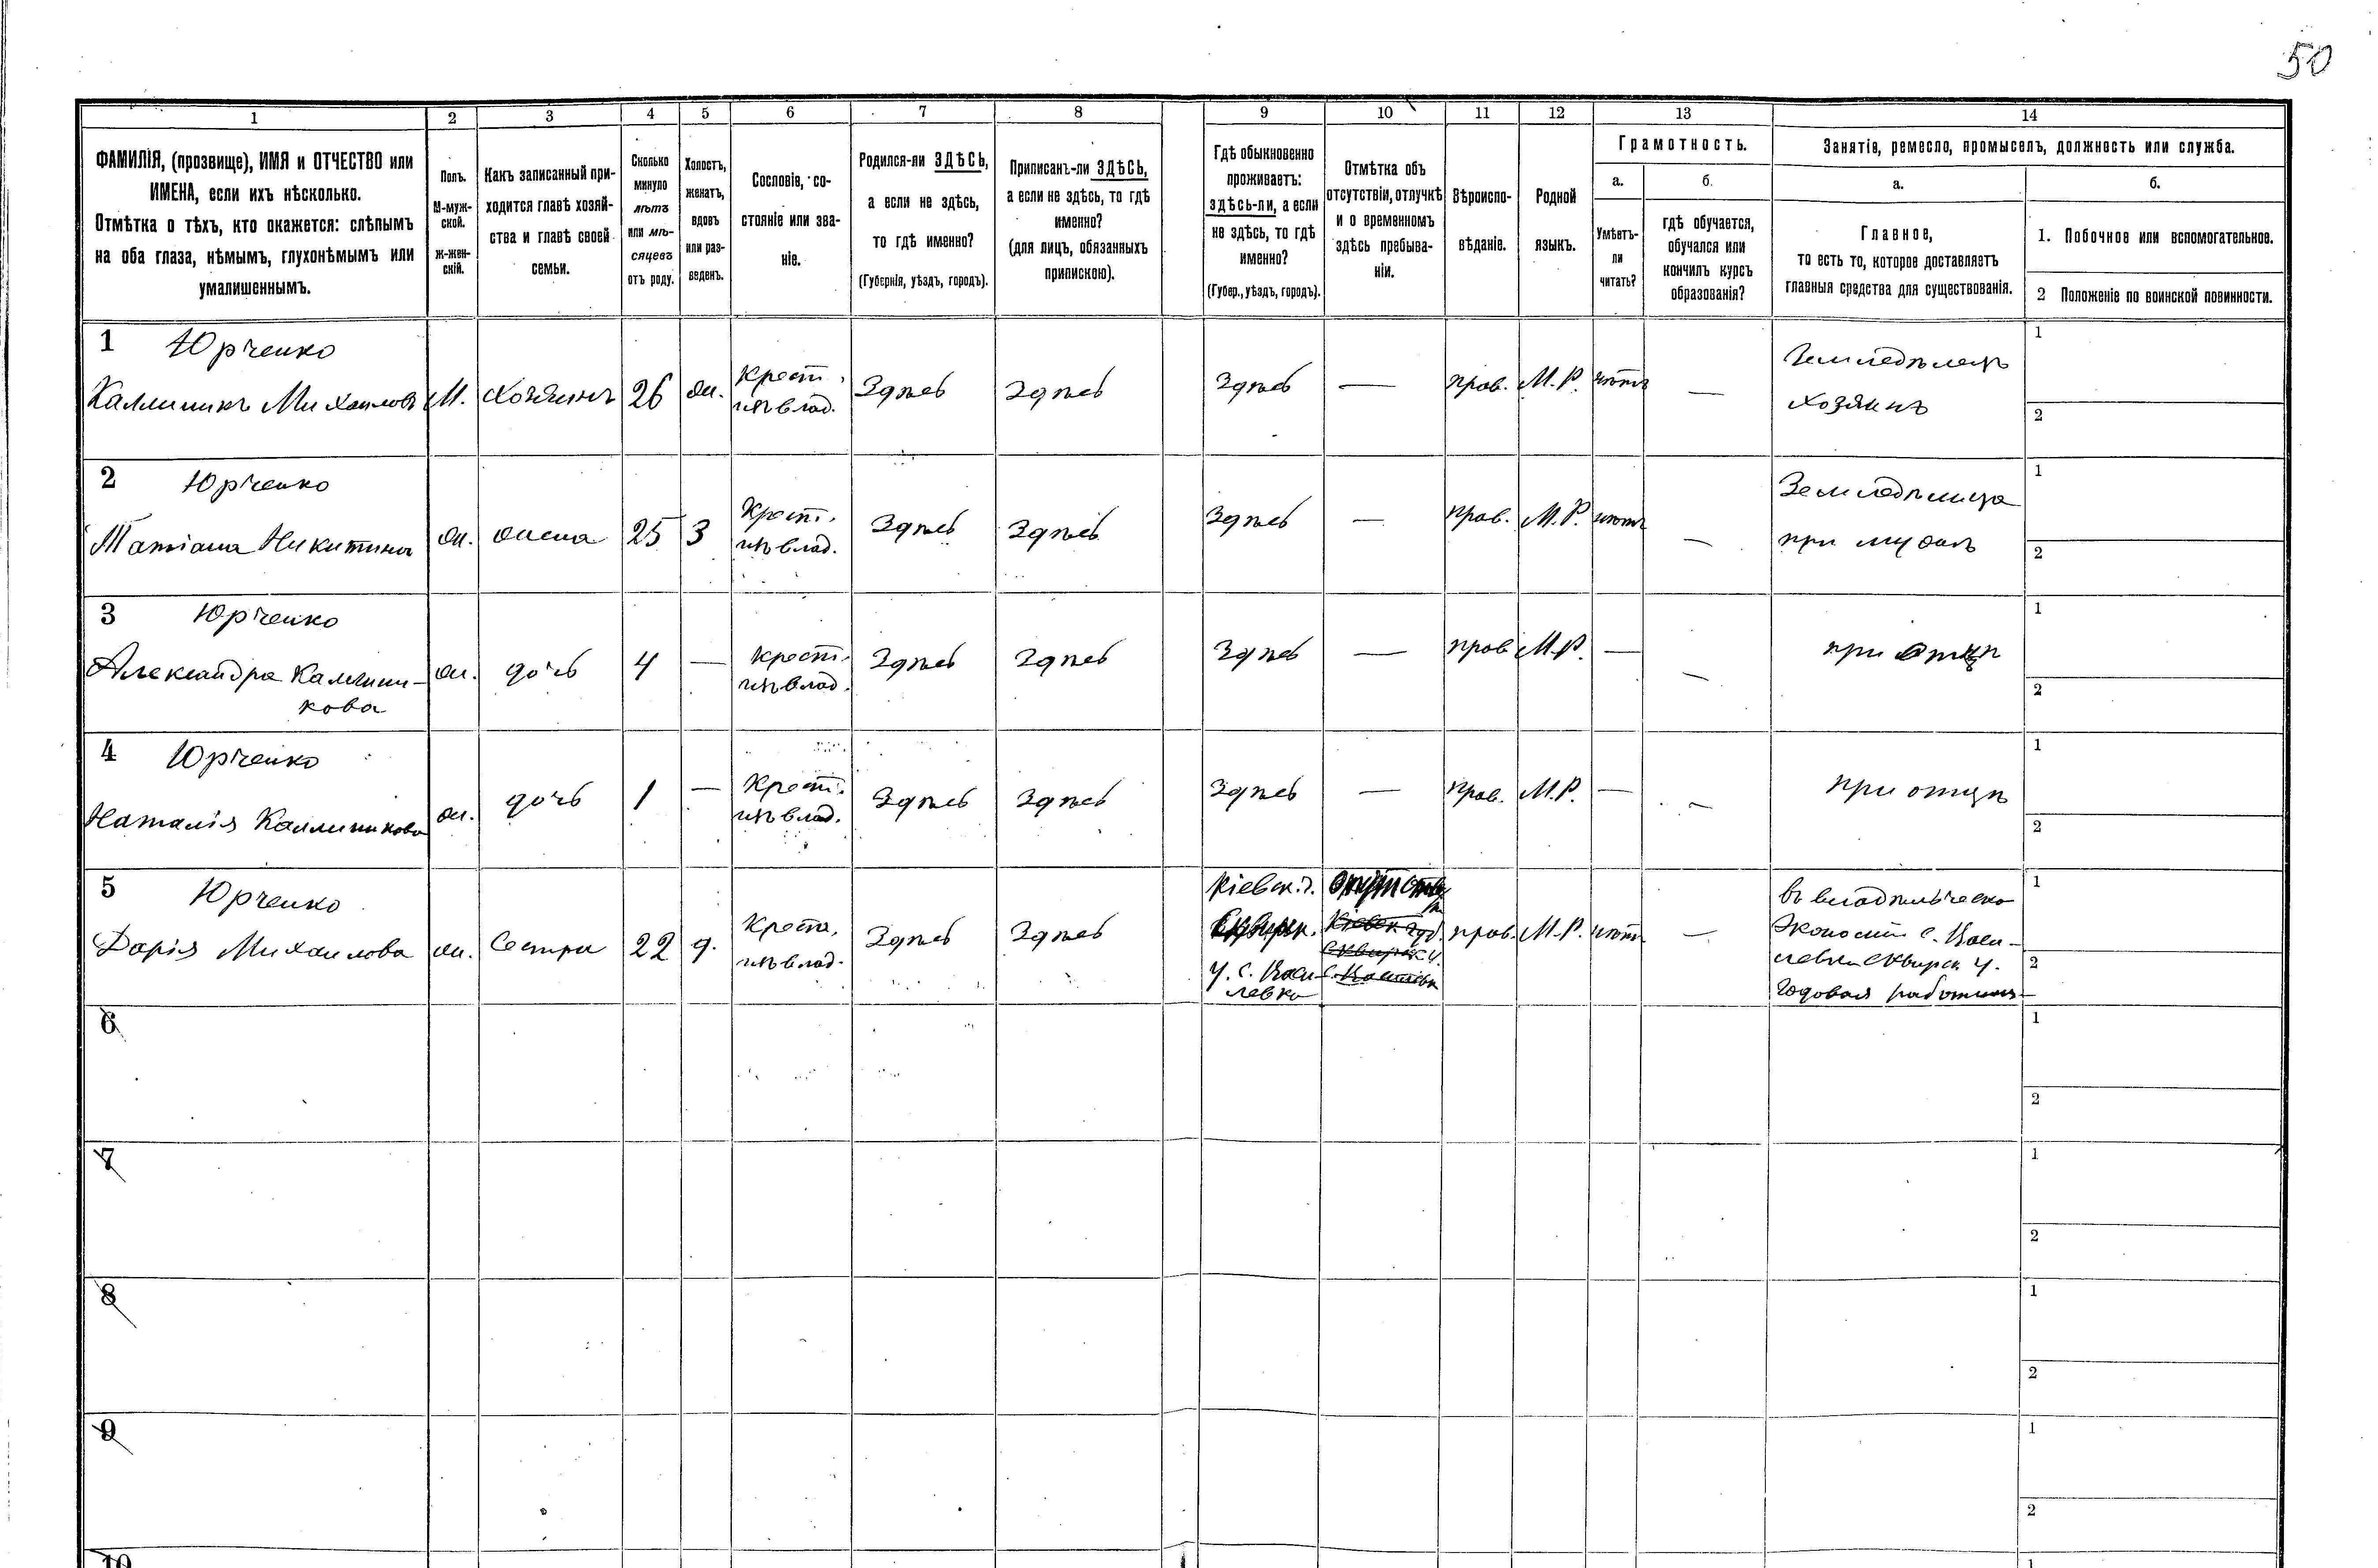 50
1 2 3 4 5 6 7 8 9 10 11 12 13 14
ФАМИЛІЯ, (прозвище), ИМЯ и ОТЧЕСТВО или
ИМЕНА, если ихъ нѣсколько.
Отмѣтка о тѣхъ, кто окажется: слѣпымъ
на оба глаза, нѣмымъ, глухонѣмымъ или
умалишеннымъ.
Полъ.
М-муж-
ской.
Ж-жен-
скій.
Какъ записанный при-
ходится главѣ хозяй-
ства и главѣ своей
семьи.
Сколько
минуло
лѣтъ
или мѣ-
сяцевъ
отъ роду.
Холостъ,
женатъ,
вдовъ
или раз-
веденъ.
Сословіе, со-
стояніе или зва-
ніе.
Родился-ли ЗДѢСЬ,
а если не здѣсь,
то гдѣ именно?
(Губернія, уѣздъ, городъ).
Приписанъ-ли ЗДѢСЬ,
а если не здѣсь, то гдѣ
именно?
(для лицъ, обязанныхъ
припискою).
Гдѣ обыкновенно
проживаетъ:
здѣсь-ли, а если
не здѣсь, то гдѣ
именно?
(Губер., уѣздъ, городъ).
Отмѣтка объ
отсутствіи, отлучкѣ
и о временномъ
здѣсь пребыва-
ніи.
Вѣроиспо-
вѣданіе.
Родной
языкъ.
Грамотность.
а.
Умѣетъ-
ли
читать?
б.
гдѣ обучается,
обучался или
кончилъ курсъ
образованія?
Занятіе, ремесло, промыселъ, должность или служба.
а.
Главное,
то есть то, которое доставляетъ
главныя средства для существованія.
б.
1. Побочное или вспомогательное.
2 Положеніе по воинской повинности.
1 Юрченко
Каллиникъ Михаиловъ М. хозяинъ 26 ж. Крест. Здѣсь Здѣсь Здѣсь — прав. М.Р. нѣтъ —
изъ влад.
Земледѣлецъ
хозяинъ
1
2
2 Юрченко
Татіана Никитина ж. жена 25 З Крест. Здѣсь Здѣсь Здѣсь — прав. М.Р. нѣтъ —
изъ влад.
Земледѣлица
при мужѣ
1
2
3 Юрченко
Александра Каллини-
кова
ж. дочь 4 — Крест. Здѣсь Здѣсь Здѣсь — прав М.Р. — —
изъ влад.
при отцѣ
1
2
4 Юрченко
Наталія Каллиникова ж. дочь 1 — Крест. Здѣсь Здѣсь Здѣсь — прав. М.Р. — —
изъ влад.
при отцѣ
1
2
5 Юрченко
Дарія Михаилова ж. Сестра 22 д. Крест. Здѣсь Здѣсь
изъ влад.
Кіевск. г.
Сквирск.
У. с. Васи-
левка
Кіевск. губ.
Сквирск. у.
прав. М.Р. нѣтъ —
въ владѣльческо
Экономіи с. Васи-
левки Сквирск. у.
годовая работница
1
2
6
1
2
7
1
2
8
1
2
9
1
2
10
1